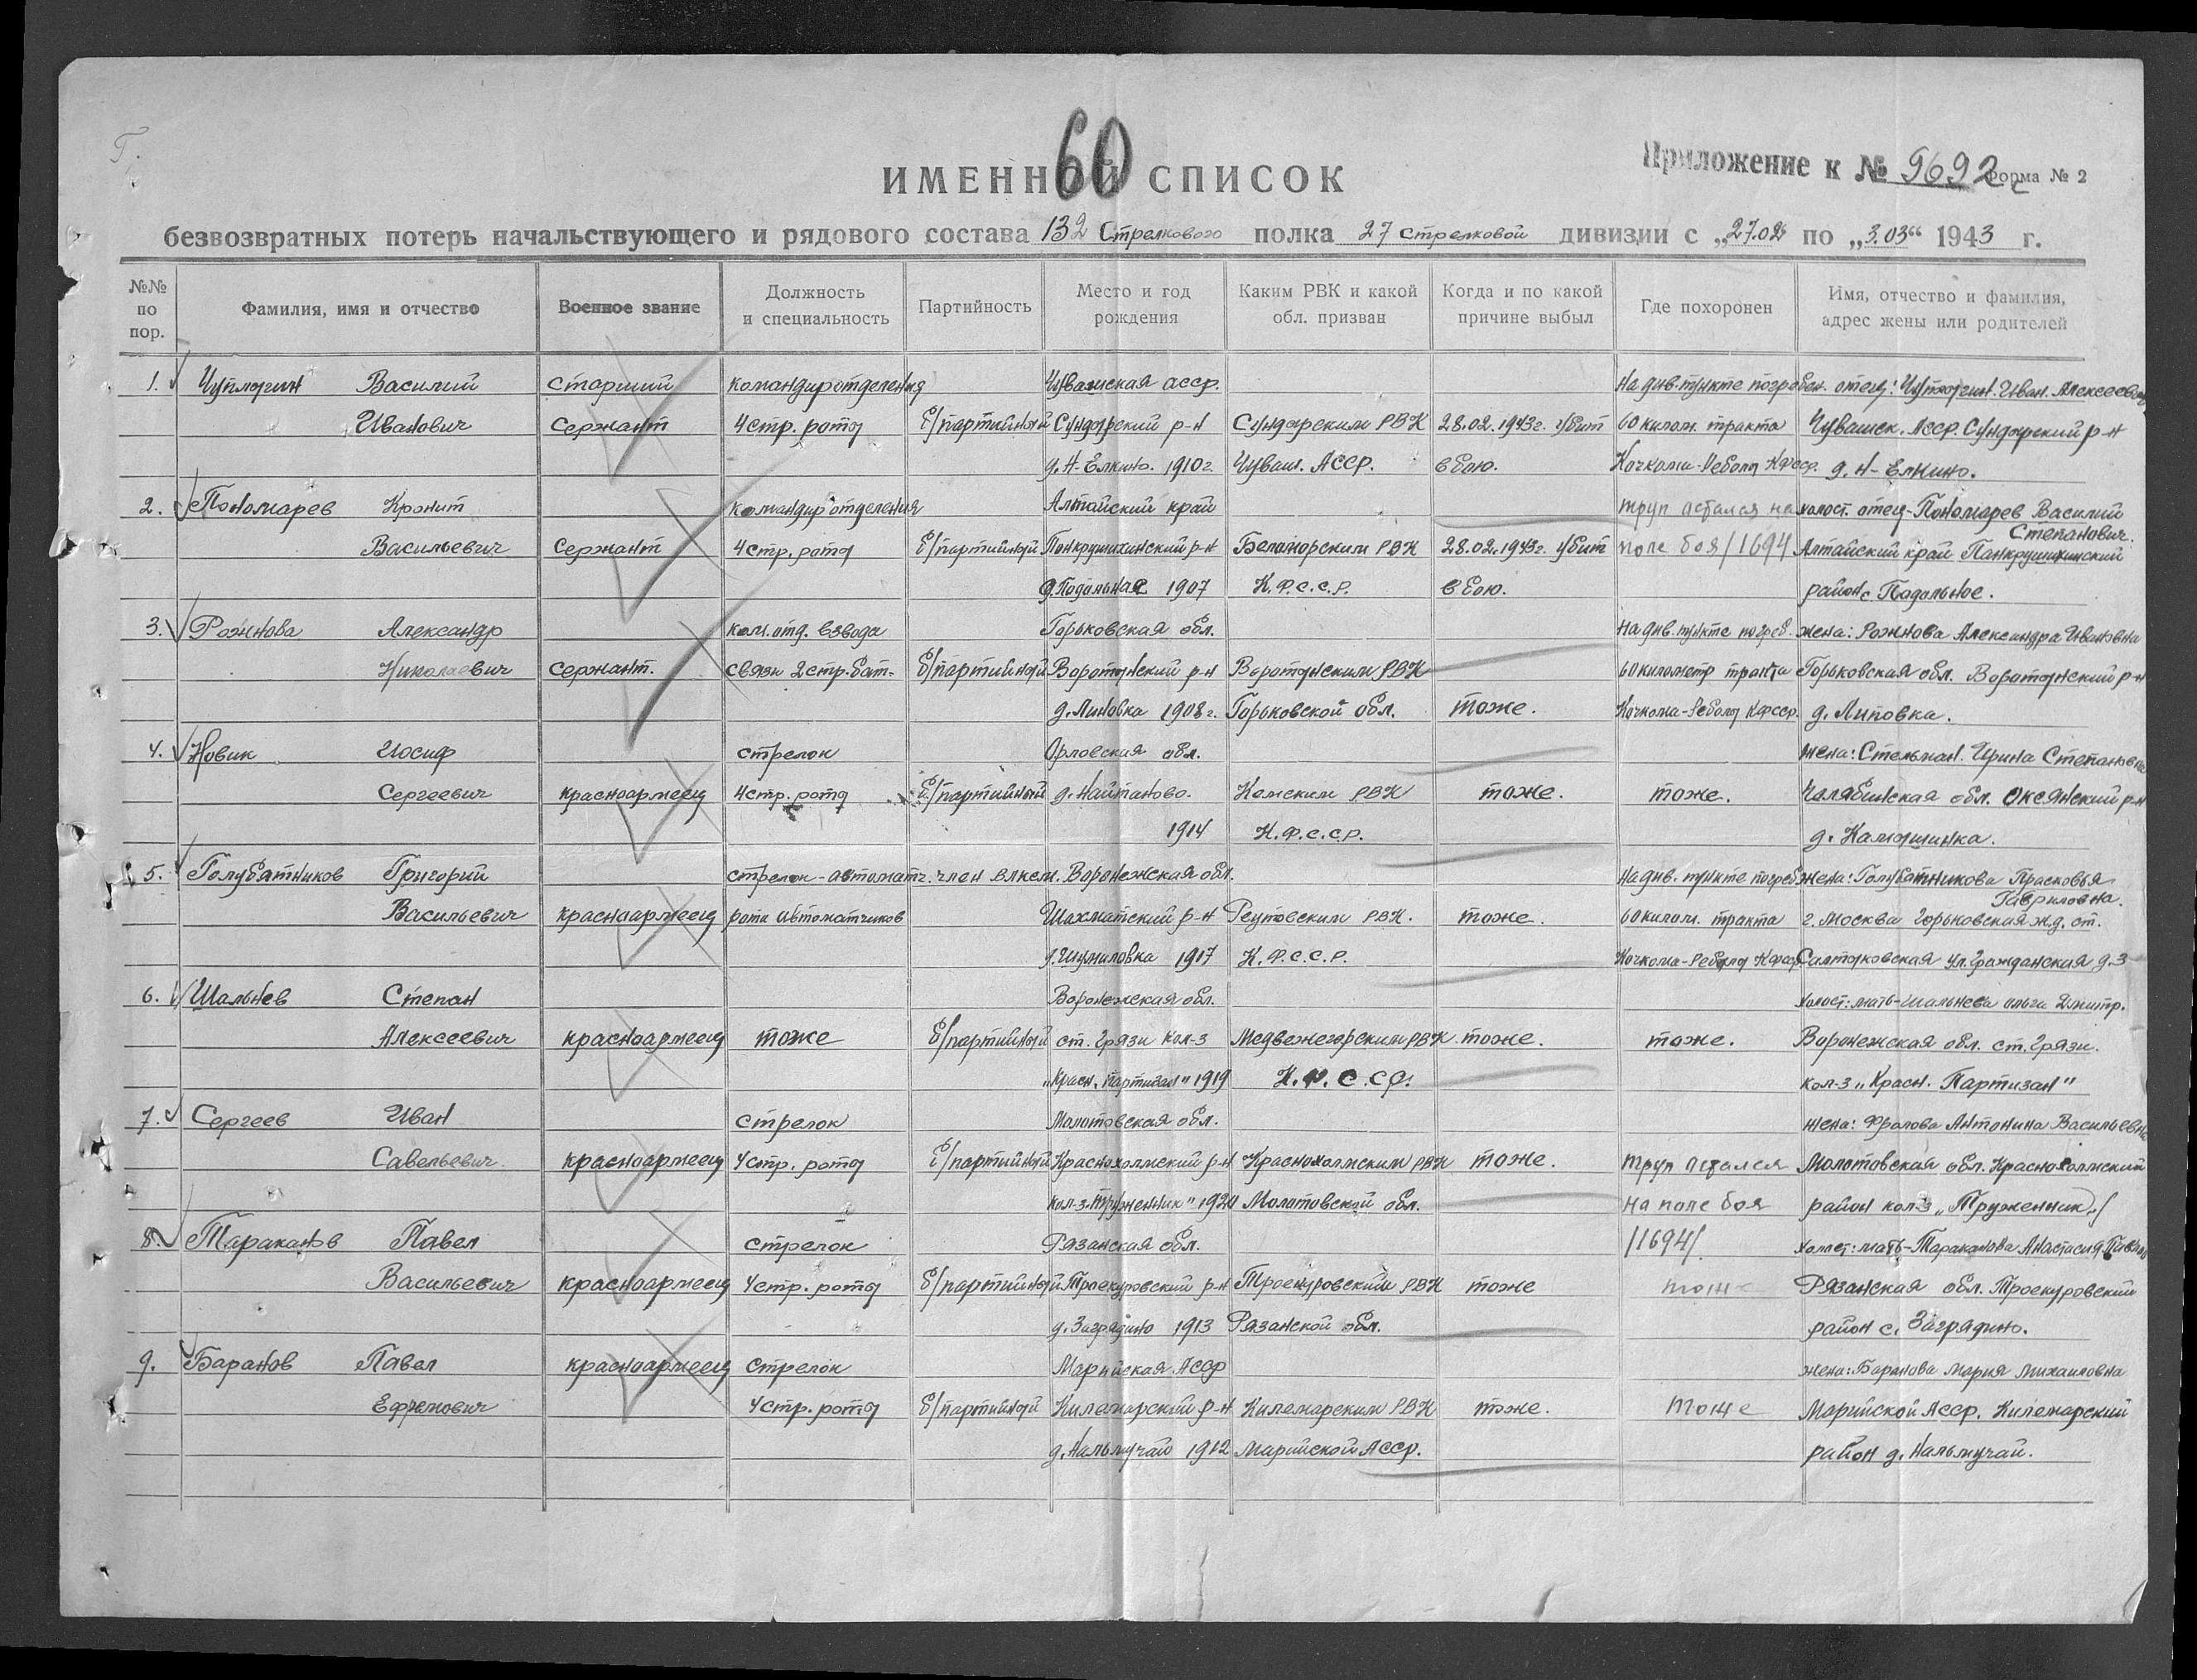 Г.
60
ИМЕННОЙ СПИСОК
Приложение к № 9692с
Форма № 2
безвозвратных потерь начальствующего и рядового состава 132 Стрелкового полка 27 стрелковой дивизии с „27.02" по „3.03" 1943 г.
№№ по пор. Фамилия, имя и отчество Военное звание Должность и специальность Партийность Место и год рождения Каким РВК и какой обл. призван Когда и по какой причине выбыл Где похоронен Имя, отчество и фамилия, адрес жены или родителей
1. Чуплыгин Василий старший командир отделения Чувашская асср. На див. пункте погребен. отец: Иван Алексеевич
Иванович Сержант 4 стр. роты б/партийный Сундырский р-н Сундырским РВК 28.02.1943г. убит 60 килом. тракта Чувашск. Асср. Сундырский р-н
д. Н-Елкино. 1910г. Чуваш. АССР. в бою. Кочкома-Реболы Кфсср. д. Н-Елкино.
2. Пономарев Кронит командир отделения Алтайский край труп остался на холост. отец-Пономарев Василий Степанович.
Васильевич Сержант 4 стр. роты б/партийный Панкрушихинский р-н Беломорским РВК 28.02.1943г. убит поле боя /1694 Алтайский край Панкрушихинский
1907 К.Ф.С.С.Р. в бою. район с. Подольное.
3. Рожнова Александр ком. отд. взвода Горьковская обл. На див. пункте погреб. жена: Рожнова Александра Ивановна
Николаевич сержант. связи 2 стр. бат. б/партийный Воротынский р-н Воротынским РВК 60 километр тракта Горьковская обл. Воротынский р-н
д. Липовка 1908г. Горьковской обл. тоже. Кочкома-Реболы Кфсср. д. Липовка.
4. Новик Иосиф стрелок Орловская обл. жена: Стельмах Ирина Степановна
Сергеевич красноармеец 4 стр. роты б/партийный д. Найтаново. Кемским РВК тоже. тоже. Челябинская обл. Оксянский р-н
1914 К.Ф.С.С.Р. д. Камышинка.
5. Голубятников Григорий стрелок-автоматч. член влксм. Воронежская обл. На див. пункте погреб жена: Голубятникова Прасковья Гавриловна.
Васильевич красноармеец роты автоматчиков Шахматский р-н Реутовским РВК. тоже. 60 килом. тракта г. Москва Горьковская ж.д. ст.
д. Шумиловка 1917 К.Ф.С.С.Р. Кочкома-Реболы Кфсср Салтыковская ул. Гражданская д. 3
6. Шальнев Степан Воронежская обл. холост: мать-Шальнева Ольга Дмитр.
Алексеевич красноармеец тоже б/партийный ст. Грязи кол-з Медвежегорским РВК тоже. тоже. Воронежская обл. ст. Грязи.
„Красн. Партизан" 1919 К.Ф.С.СР. кол-з „Красн. Партизан"
7. Сергеев Иван стрелок Молотовская обл. жена: Фралова Антонина Васильевна
Савельевич красноармеец 4 стр. роты б/партийный Краснохолмский р-н Краснохолмским РВК тоже. труп остался Молотовская обл. Краснохолмский
кол-з „Труженник" 1920 Молотовской обл. на поле боя район кол-з „Труженник"
8. Тараканов Павел стрелок Рязанская обл. /1694/. холост: мать-Тараканова Анастасия
Васильевич красноармеец 4 стр. роты б/партийный Троекуровский р-н Троекуровским РВК тоже тоже Рязанская обл. Троекуровский
д. Заградино 1913 Рязанской обл. район с. Заградино.
9. Баранов Павел красноармеец стрелок Марийская Асср жена: Баранова Мария Михаиловна
Ефремович 4 стр. роты б/партийный Килемарский р-н Килемарским РВК тоже. тоже Марийской Асср. Килемарский
д. Нальмучай 1912 Марийской Асср. район д. Нальмучай.